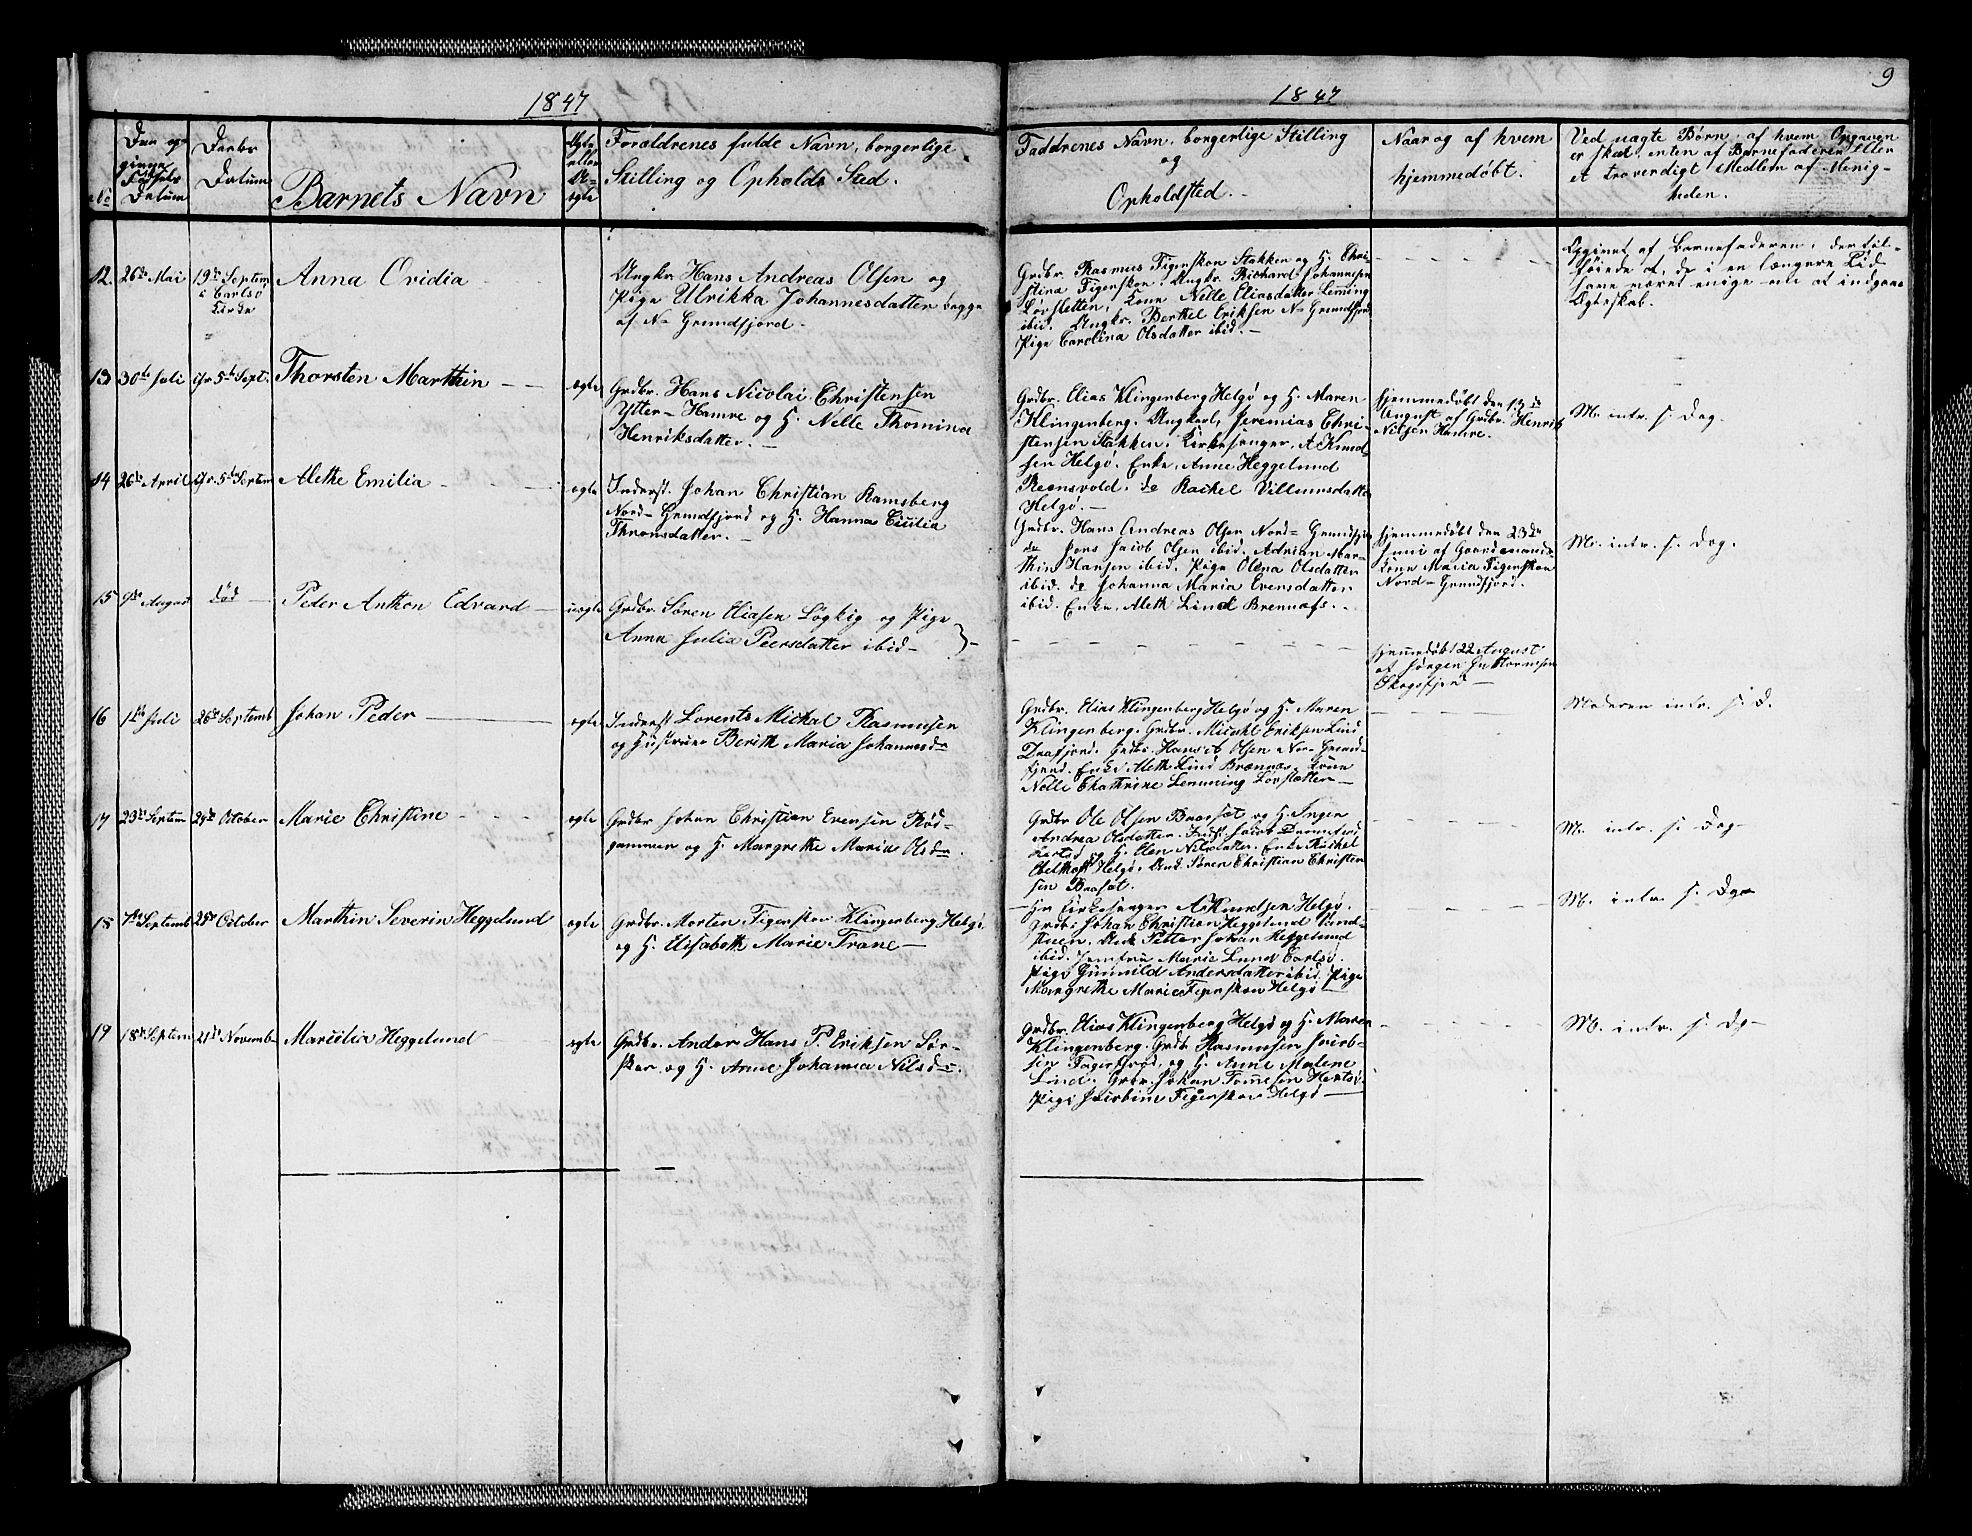 1847
1847
9
No
Den op-
givne
Fødsels
Datum
Daabs
Datum
Barnets Navn
Ægte
eller
U-
ægte
Forældrenes fulde Navn, borgerlige
Stilling og Opholds Sted.
Faddrenes Navn, borgerlige Stilling
og
Opholdsted.
Naar og af hvem
hjemmedøbt.
Ved uagte Børn, af hvem Opgaven
er skeet, enten af Barnefaderen eller
et troverdigt Medlem af Menig-
heden.
12. 26de Mai
19de Septem
i Carlsø
Kirke
Anna Ovidia
Ungkr Hans Andreas Olsen og
Pige Ulrikka Johannesdatter begge
af N- Grundfjord.
Grdbr. Rasmus Figenskou Stakken og H. Chri-
stina Figenskou. Ungkr. Richard Johannesen
Lørsletten, Kone Nelle Eliasdatter Lemming
ibid. Ungkr. Berthel Eriksen N- Grundfjord
Pige Carolina Olsdatter ibid.
Opgivet af Barnefaderen, der til-
føiede at de i en længere Tid
have været enige om at indgaae
Ægteskab.
13 30te Juli
ifr 5te Sept.
Thorsten Marthin
ægte
Grdbr. Hans Nicolai Christensen
Ytter- Hamre og H. Nelle Thomina
Henriksdatter.
Grdbr. Elias Klingenberg Helgø og H. Maren
Klingenberg. Ungkarl Jeremias Chri-
stensen Stakken. Kirkesanger A. Knud-
sen Helgø. Enke Anne Heggelund
Reensvold. do Rachel Villumsdatter
Helgø.
Hjemmedøbt den 13de
August af Grdbr. Henrik
Nilsen Hamre.
M. intr. s. Dag.
14 26de April
ifr. 5te Septem
Alethe Emilia
ægte
Inderst. Johan Christian Ramsberg
Nord- Grundfjord og H. Hanna Cicilia
Thronsdatter.
Grdbr. Hans Andreas Olsen Nord- Grundfjo
do Jens Jacob Olsen ibid. Adrian Mar-
thin Hansen ibid. Pige Olena Olsdatter
ibid. do Johanna Maria Evensdatter
ibid. Enke Aleth Lind Brennæs.
Hjemmedøbt den 23de
Juni af Gaardmands
Kone Maria Figenskou
Nord- Grundfjord.
M. intr. s. Dag.
15 9de August
død
Peder Anthon Edvard
uægte
Grdbr. Søren Eliasen Løgkig og Pige
Anna Julia Peersdatter ibid
Hjemmedøbt 22 August
af Jørgen Guttormsen
Skogsfjord
16 1ste Juli
26de Septemb
Johan Peder
ægte
Inderst Lorents Michal Rasmusen
og Hustrue Berith Maria Johannesdr
Grdbr. Elias Klingenberg Helgø og H. Maren
Klingenberg. Grdbr. Michal Eriksen Lind
Draffjord. Grdbr. Hans A. Olsen Nor- Grund-
fjord. Enke Aleth Lind Brænnæs. Kone
Nelle Chathrine Lemming Lørsletten
Moderen intr. s. D.
17 23de Septem
24de October
Marie Christine
ægte
Grdbr Johan Christian Evensen Rød-
gammen og H. Margrethe Maria Olsdr.
Grdbr Ole Olsen Braasæt og H. Inger
Andrea Olsdatter. Indst. Jacob Dannefærd
Hertsø og H. Elen Nilsdatter. Enke Rachel
Ebelthoft Helgø. Unk Søren Christian Christen-
sen Brasæt.
M. intr. s. Dag
18 7de Septemb
25de October
Marthin Severin Heggelund
ægte
Grdbr. Morten Figenskou Klingenberg Helgø
og H. Elisabeth Marie Trane
Hr. Kirkesanger A Knudsen Helgø.
Grdbr Johan Christian Heggelund Vand-
stuen. Unk Petter Johan Heggelund
ibid. Jomfru Marie Lund Carlsø.
Pige Gunnild Andersdatter ibid. Pige
Margrethe Marie Figenskou Helgø
M. intr. s. Dga
19 18de Septem
21de Novemb
Marcilia Heggelund
ægte
Grdbr. Andor Hans P. Eriksen Sør-
skar og H. Anne Johanna Nilsdr.
Grdbr. Elias Klingenberg Helgø og H. Maren
Klingenberg. Grdbr Rasmusen Jacob-
sen Fagerfjord, og H. Anne Malene
Lind. Grdbr. Johan Tommesen Hertsø
Pige Jacobine Figenskou Helgø
M. intr. s. Dg